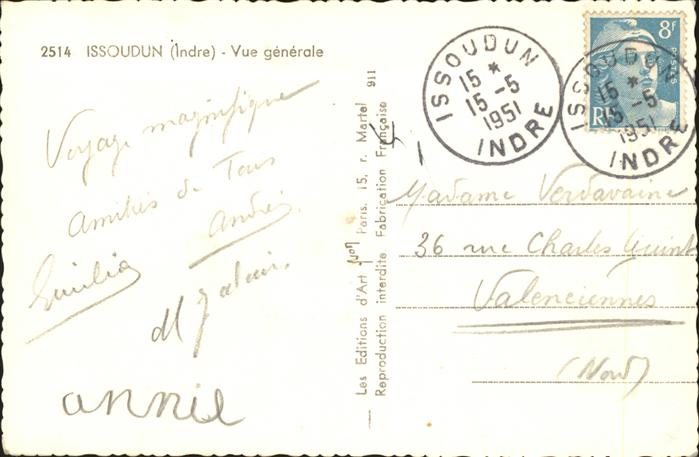 2514 ISSOUDUN (Indre) - Vue générale
Voyage magnifique
Amitiés de Tous
André
Emilia
annie
Les Editions d'Art "Yvon" Paris, 15, r. Martel 911
Reproduction interdite Fabrication Française
ISSOUDUN
15 *
15 -5
1951
INDRE
8f
POSTES
RF
ISSOUDUN
15 *
15 -5
1951
INDRE
Madame Verdavaine
36 rue Charles Quint
Valenciennes
(Nord)